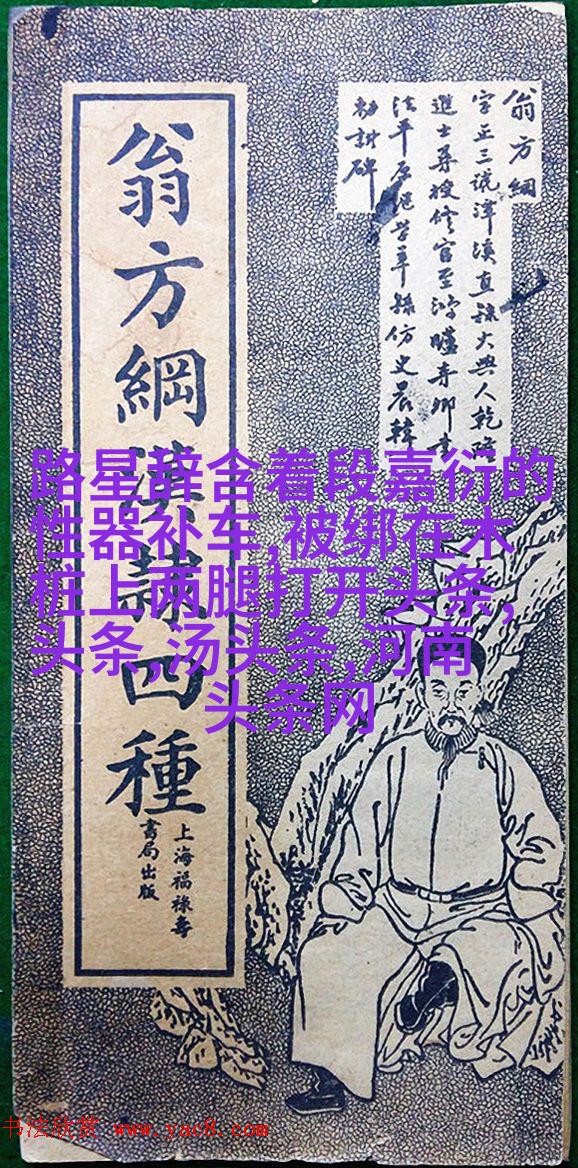 翁方綱
字正三號潭溪直隸大興人乾
進士授官至鴻臚寺卿書
法平原仿史晨韓
勑封碑
翁方綱漢隸四種
上海福祿壽
書局出版
路星辞含着段嘉衍的
性器补车,被绑在木
桩上两腿打开头条,
头条,汤头条,河南
头条网
书法欣赏 www.yac8.com